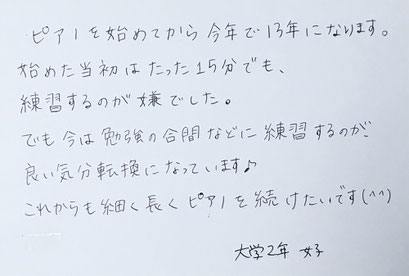 ピアノを始めてから今年で13年になります。
始めた当初はたった15分でも、
練習するのが嫌でした。
でも今は勉強の合間などに練習するのが、
良い気分転換になっています♪
これからも細く長くピアノを続けたいです(^^)
大学2年 女子